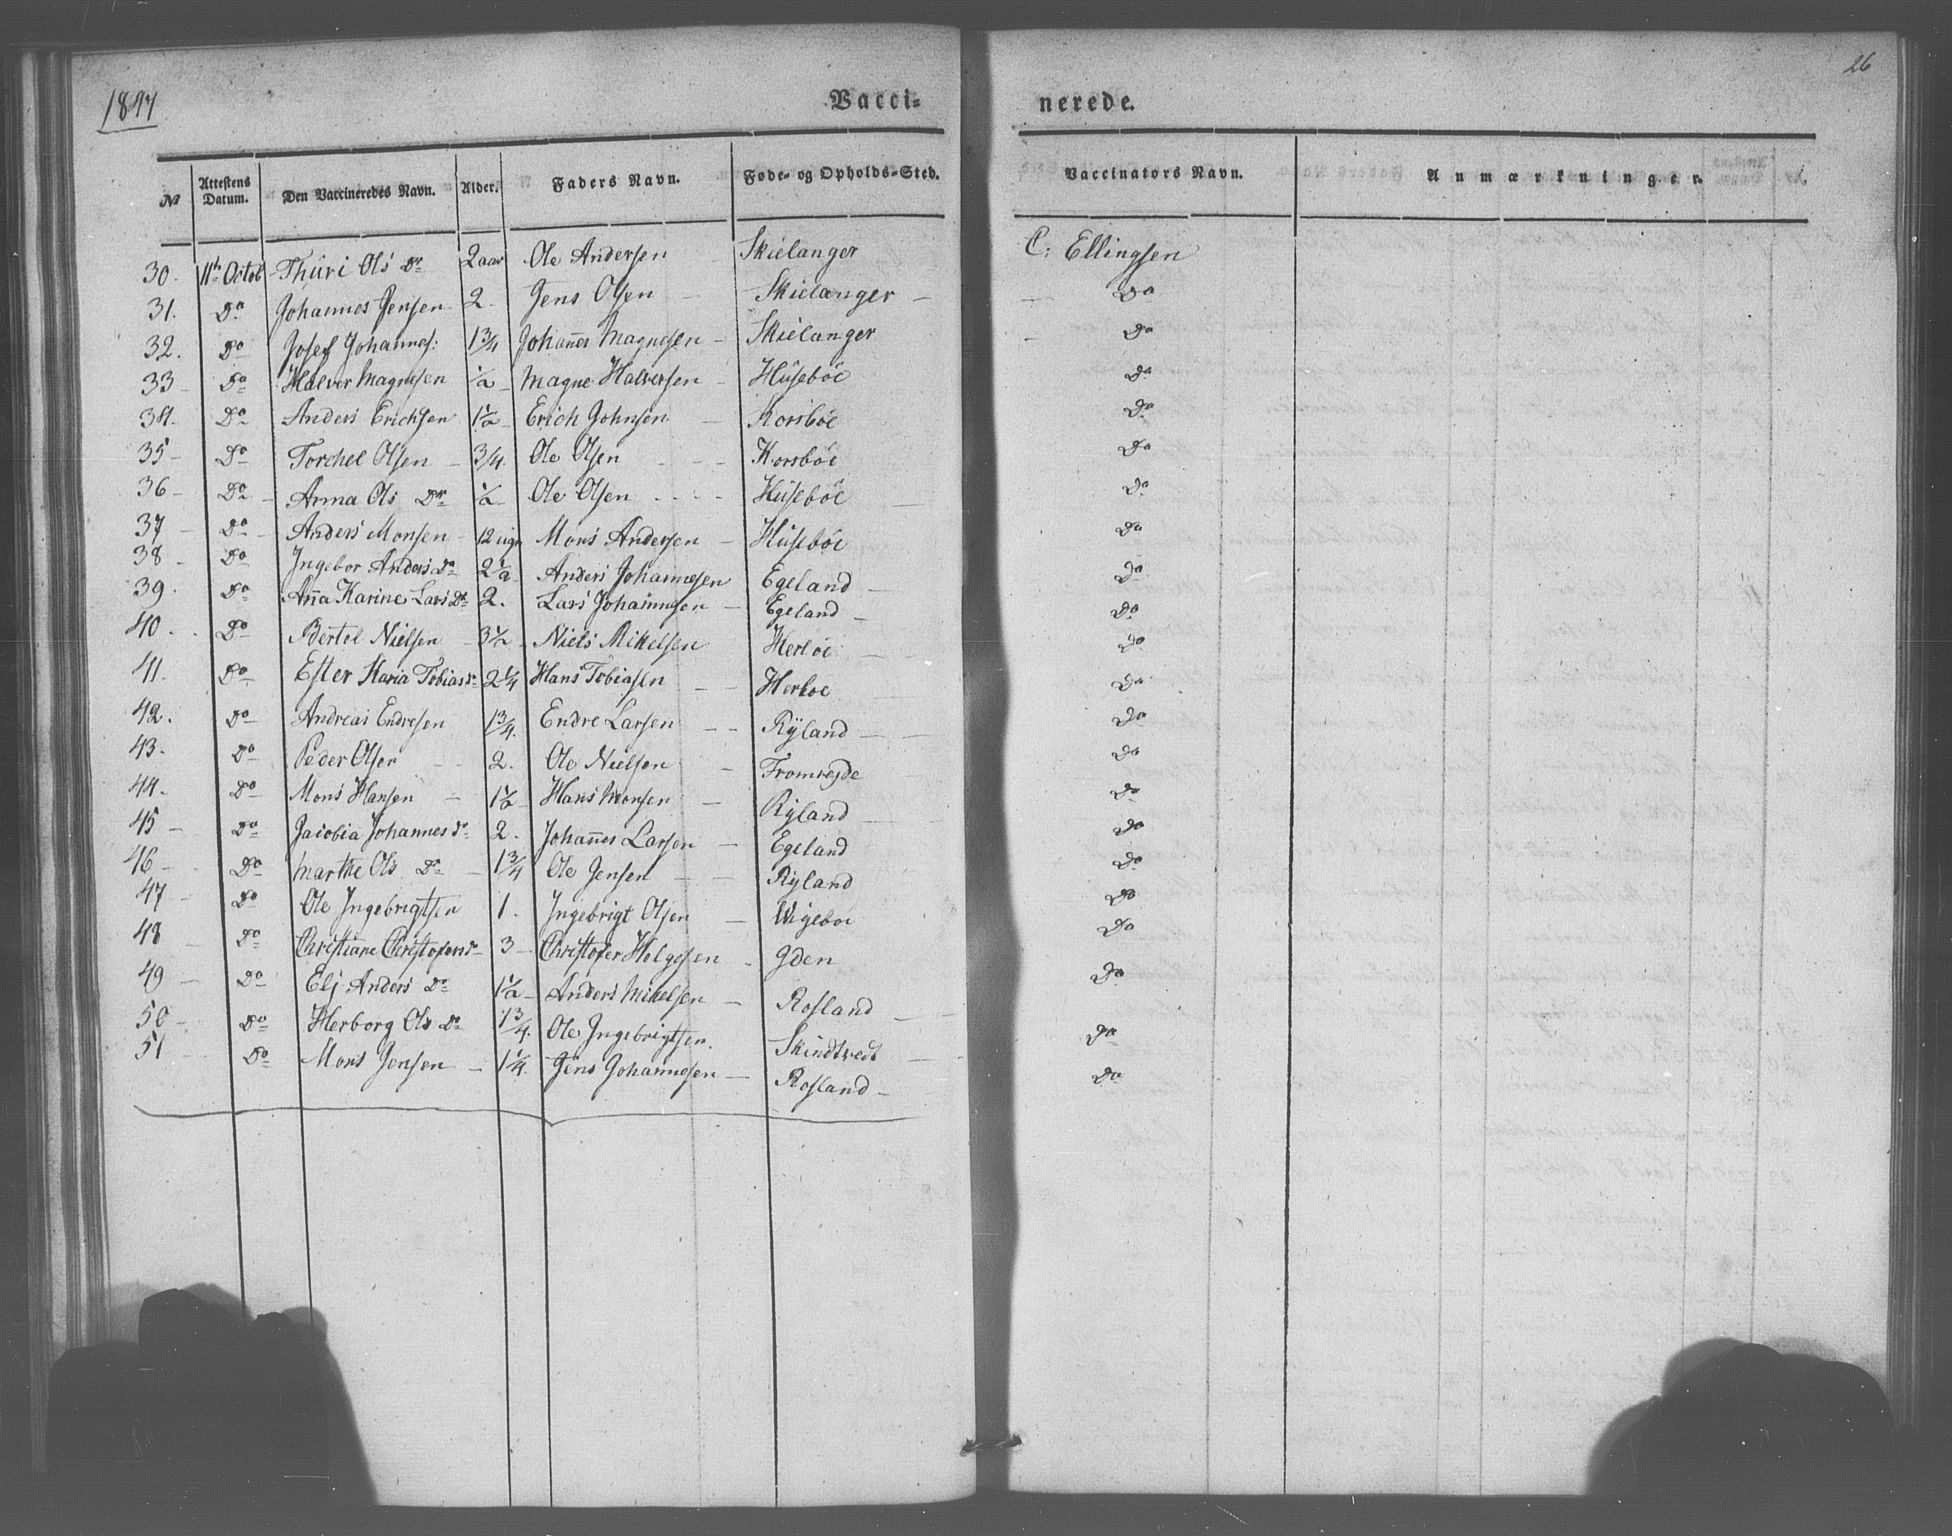 26
1847
Vacci- nerede.
№ Attestens Datum. Den Vaccineredes Navn. Alder. Faders Navn. Føde- og Opholds-Sted. Vaccinators Navn. Anmærkninger.
30. 11te Octob Thuri Ols Dr 2 aar Ole Andersen Skielanger C: Ellingsen
31. Do Johannes Jensen 2. Jens Olsen Skielanger Do
32. Do Josef Johannes: 1 3/4 Johañes Magnesen Skielanger Do
33 Do Halver Magnesen 1/2 Magne Halversen Husebøe Do
34. Do Anders Erichsen 1 1/2 Erich Johnsen Korsbøe Do
35 Do Torchel Olsen 3/4. Ole Olsen Korsbøe Do
36 Do Anna Ols Dr 1/2 Ole Olsen Husebøe Do
37 Do Anders Monsen 12 ugr Mons Andersen Husebøe Do
38 Do Ingebor Anders Dr 2 1/2 Anders Johannesen Egeland Do
39. Do Aña Karine Lars Dr 2. Lars Johannesen Egeland Do
40. Do Bertel Nielsen 3 1/2 Niels Mikelsen Herløe Do
41. Do Ester Maria Tobias Dr 2 1/4 Hans Tobiasen Herløe Do
42. Do Andreas Endresen 1 3/4. Endre Larsen Ryland Do
43. Do Peder Olsen 2. Ole Nielsen Fromreide Do
44. Do Mons Hansen 1 1/2 Hans Monsen Ryland Do
45 Do Jacobia Johannes Dr 2. Johañes Larsen Egeland Do
46 Do Marthe Ols Dr 1 3/4 Ole Jensen Ryland Do
47 Do Ole Ingebrigtsen 1. Ingebrigt Olsen Uigeboe Do
48 Do Christiane Christofers Dr 3 Christofer Helgesen Gden Do
49 Do Eli Anders Dr 1 1/2 Anders Mikelsen Rosland Do
50 Do Herborg Ols Dr 1 3/4. Ole Ingebrigtsen. Skindtvedt Do
51 Do Mons Jensen 1 1/4. Jens Johannesen Rosland Do